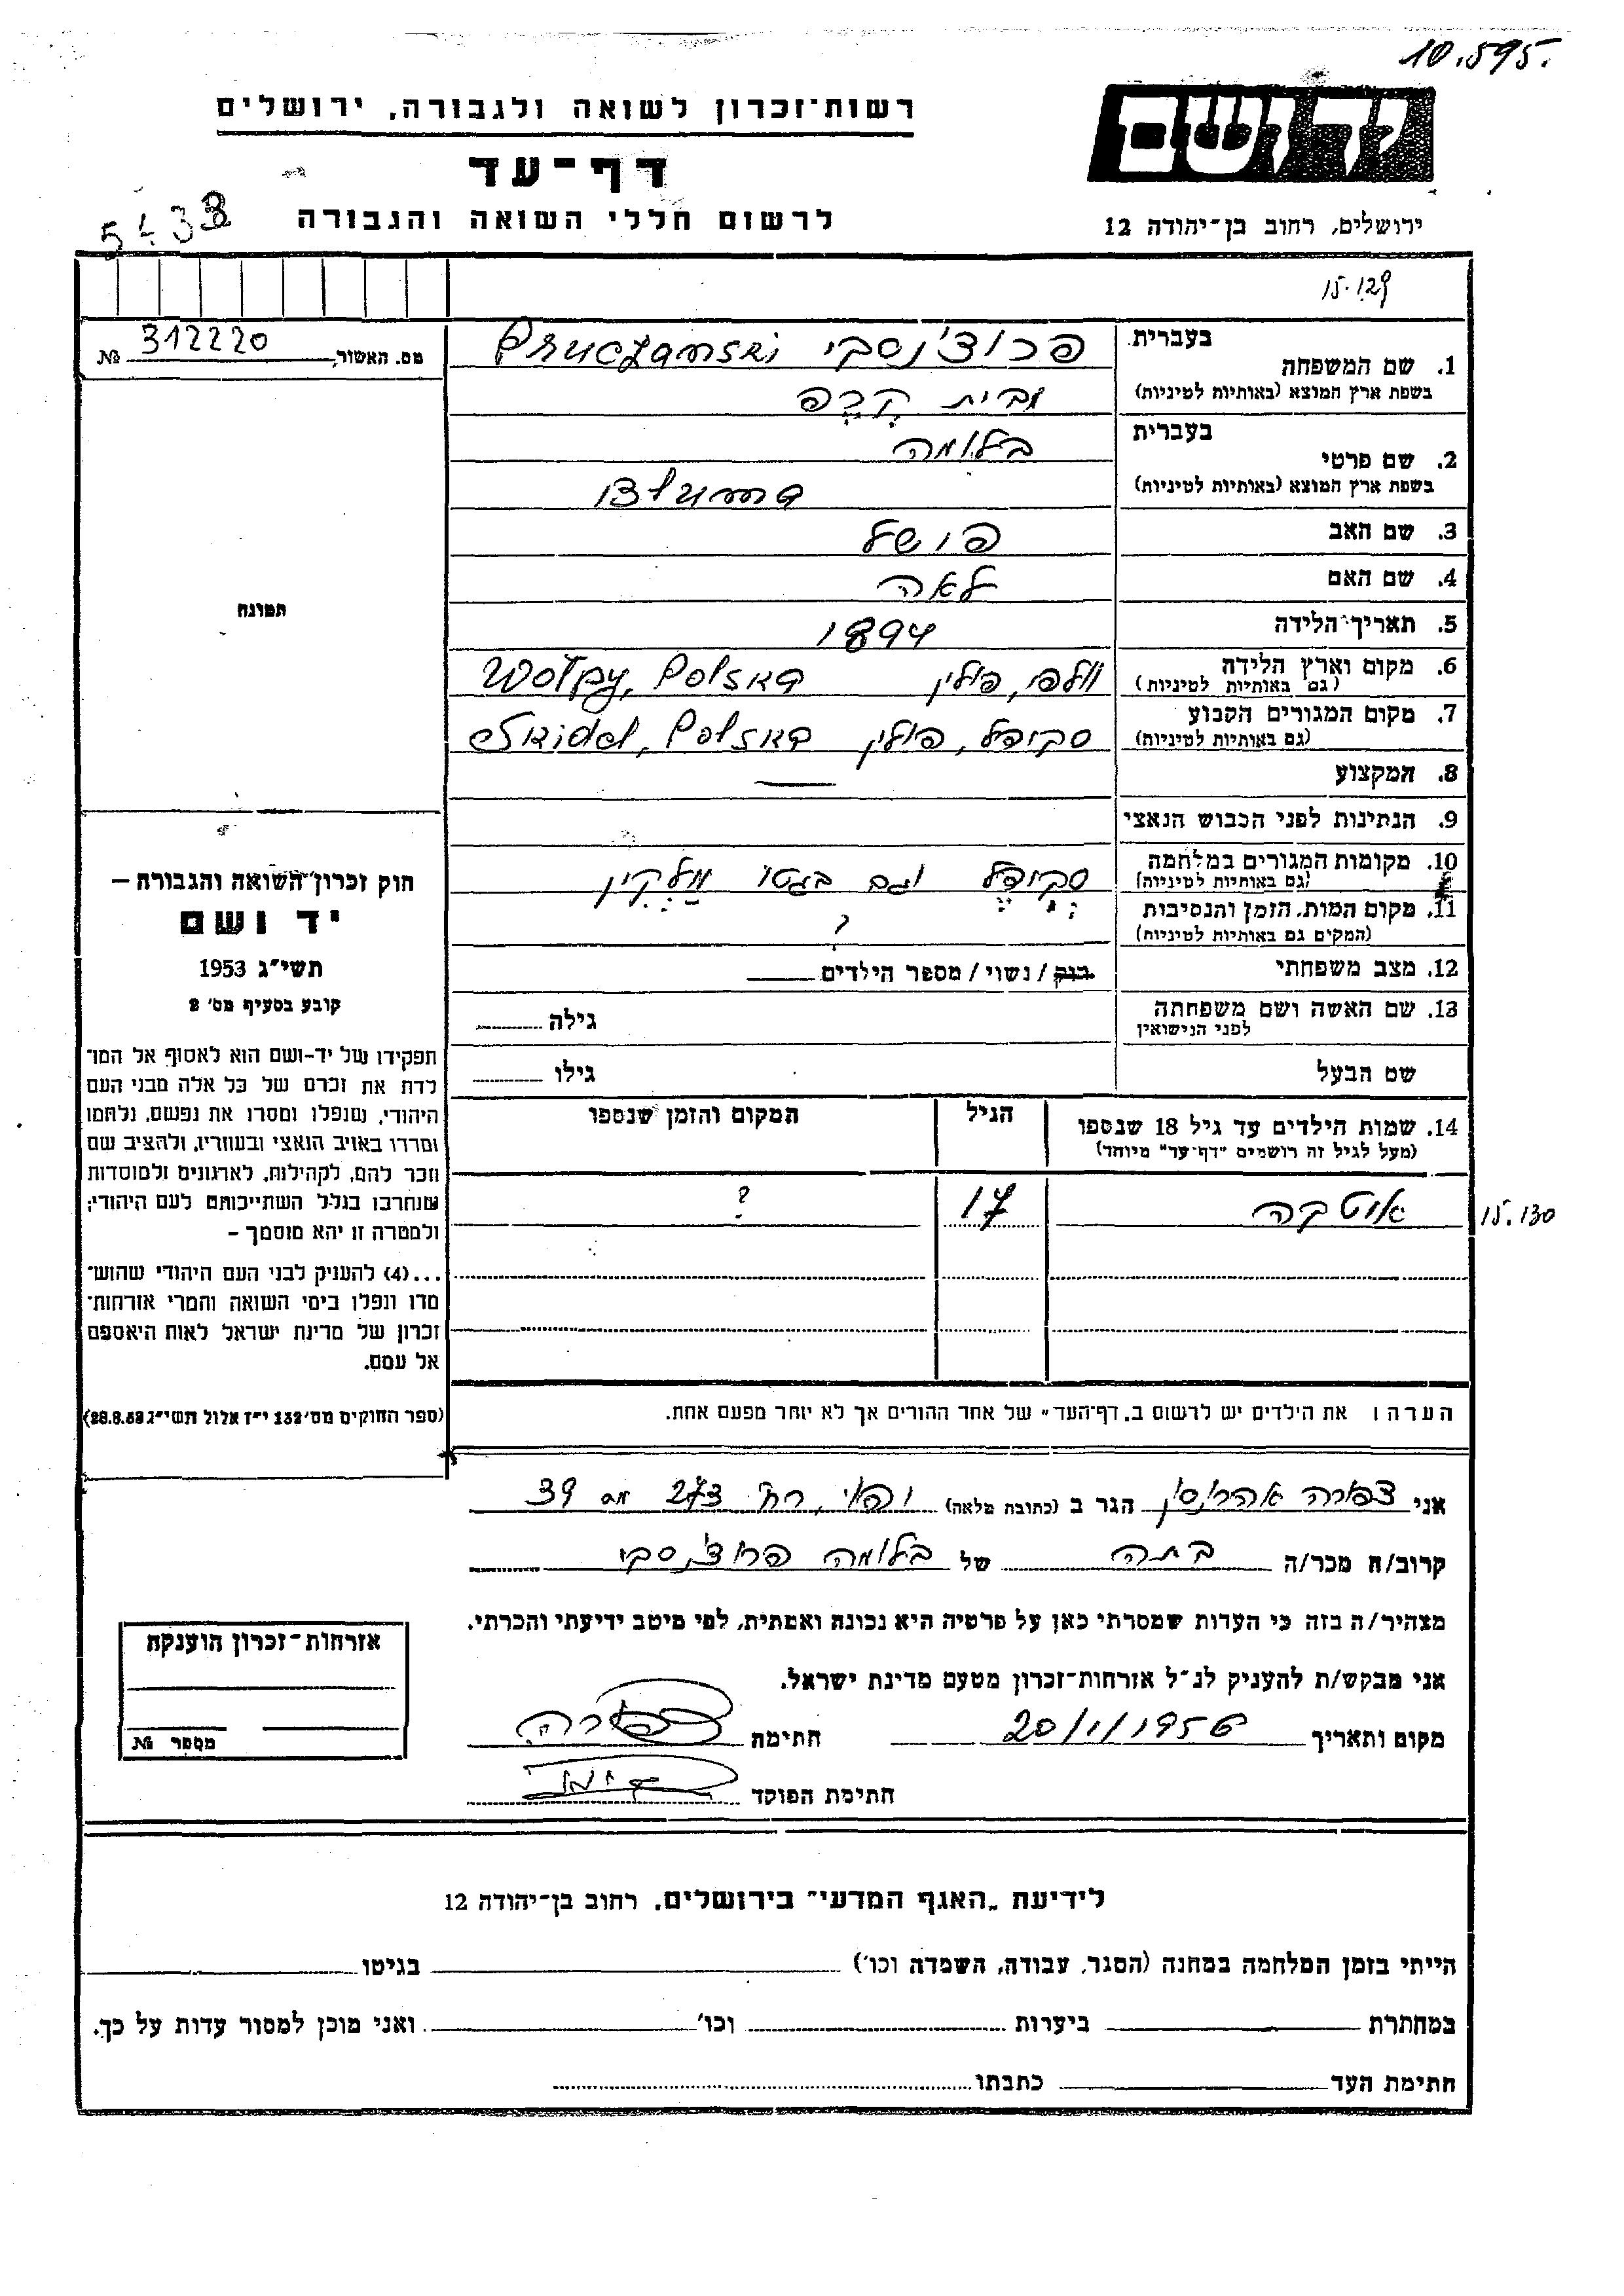 10.595.
רשות־זכרון לשואה ולגבורה, ירושלים
יד ושם
דף־עד
לרשום חללי השואה והגבורה
ירושלים, רחוב בן־יהודה 12
15.129
מס. האשור, 312220 №
בעברית
1. שם המשפחה
פרוצ'נסקי Pruczanski
בשפת ארץ המוצא (באותיות לטיניות)
מבית
בעברית
2. שם פרטי
בלומה
בשפת ארץ המוצא (באותיות לטיניות)
Bluma
3. שם האב פישל
4. שם האם לאה
5. תאריך הלידה 1894
6. מקום וארץ הלידה וולפי, פולין Wołpy, Polska
(גם באותיות לטיניות)
7. מקום המגורים הקבוע סקידל, פולין Skidel, Polska
(גם באותיות לטיניות)
8. המקצוע —
9. הנתינות לפני הכבוש הנאצי
10. מקומות המגורים במלחמה סקידל וגם בגטו
(גם באותיות לטיניות)
11. מקום המות, הזמן והנסיבות ?
(המקום גם באותיות לטיניות)
12. מצב משפחתי רווק / נשוי / מספר הילדים
13. שם האשה ושם משפחתה גילה
לפני הנישואין
שם הבעל גילו
תמונה
חוק זכרון השואה והגבורה —
יד ושם
תשי״ג 1953
קובע בסעיף מס׳ 2
תפקידו של יד-ושם הוא לאסוף אל המו־
לדת את זכרם של כל אלה מבני העם
היהודי, שנפלו ומסרו את נפשם, נלחמו
ומרדו באויב הנאצי ובעוזריו, ולהציב שם
וזכר להם, לקהילות, לארגונים ולמוסדות
שנחרבו בגלל השתייכותם לעם היהודי;
ולמטרה זו יהא מוסמך —
...(4) להעניק לבני העם היהודי שהוש־
מדו ונפלו בימי השואה והמרי אזרחות־
זכרון של מדינת ישראל לאות היאספם
אל עמם.
(ספר החוקים מס׳ 132 י״ז אלול תשי״ג 28.8.53)
14. שמות הילדים עד גיל 18 שנספו הגיל המקום והזמן שנספו
(מעל לגיל זה רושמים "דף-עד" מיוחד)
איטקה 17 ?
15.130
הערה: את הילדים יש לרשום ב„דף־העד" של אחד ההורים אך לא יותר מפעם אחת.
אני צפורה אהרונסון הגר ב (כתובת מלאה) 39
קרוב/ה מכר/ה בתה של בלומה פרוצ'נסקי
מצהיר/ה בזה כי העדות שמסרתי כאן על פרטיה היא נכונה ואמתית, לפי מיטב ידיעתי והכרתי.
אני מבקש/ת להעניק לנ״ל אזרחות־זכרון מטעם מדינת ישראל.
מקום ותאריך 20/1/1956 חתימה
חתימת הפוקד
אזרחות־זכרון הוענקה
מספר №
לידיעת „האגף המדעי" בירושלים, רחוב בן־יהודה 12
הייתי בזמן המלחמה במחנה (הסגר, עבודה, השמדה וכו׳) בגיטו
במחתרת ביערות וכו׳ ואני מוכן למסור עדות על כך.
חתימת העד כתבתו